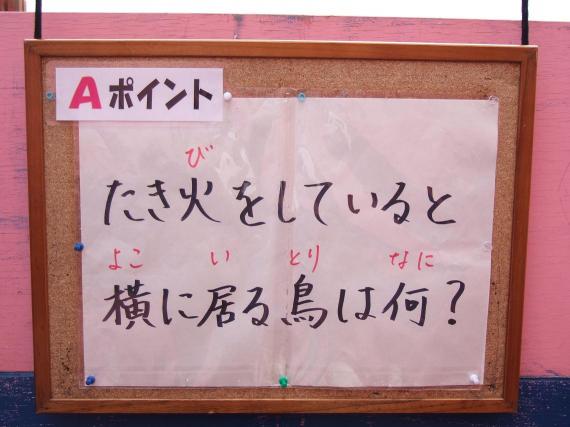 Aポイント
び
たき火をしていると
よこ い とり なに
横に居る鳥は何？